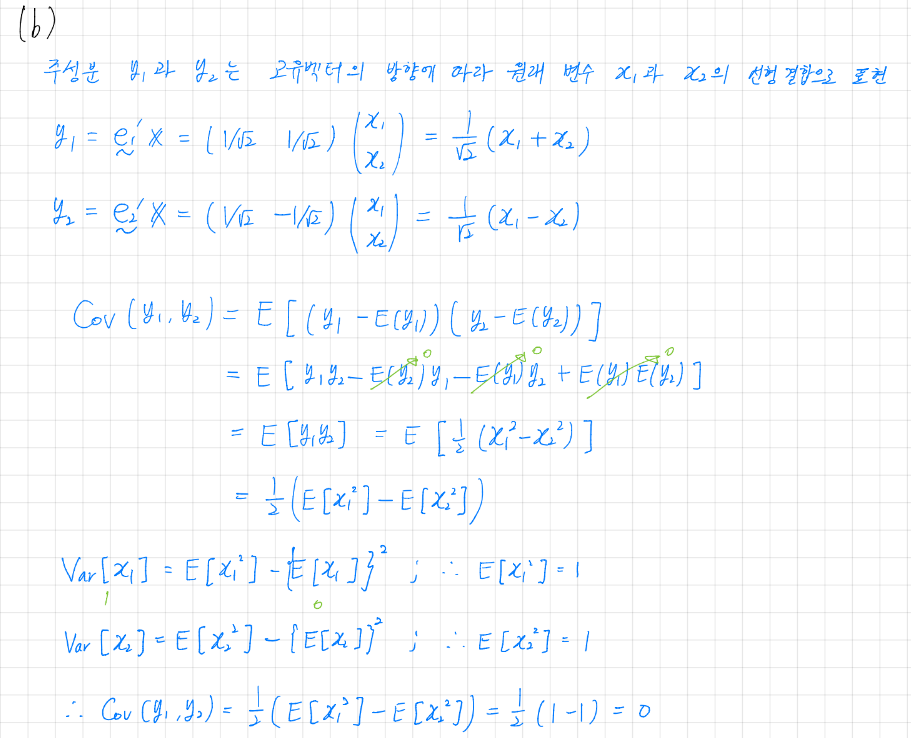 (b)
주성분 y₁과 y₂는 고유벡터의 방향에 따라 원래 변수 x₁과 x₂의 선형결합으로 표현
y₁ = e₁′ X = (1/√2 1/√2) (x₁ x₂) = 1/√2 (x₁ + x₂)
y₂ = e₂′ X = (1/√2 -1/√2) (x₁ x₂) = 1/√2 (x₁ - x₂)
Cov (y₁, y₂) = E [ (y₁ - E(y₁)) (y₂ - E(y₂)) ]
= E [ y₁y₂ - E(y₂)y₁ - E(y₁)y₂ + E(y₁) E(y₂) ] 0 0 0
= E [y₁y₂] = E [ 1/2 (x₁² - x₂²) ]
= 1/2 (E[x₁²] - E[x₂²])
Var[x₁] = E[x₁²] - {E[x₁]}² ; ∴ E[x₁²] = 1
1 0
Var [x₂] = E[x₂²] - {E[x₂]}² ; ∴ E[x₂²] = 1
∴ Cov (y₁, y₂) = 1/2 (E[x₁²] - E[x₂²]) = 1/2 (1-1) = 0